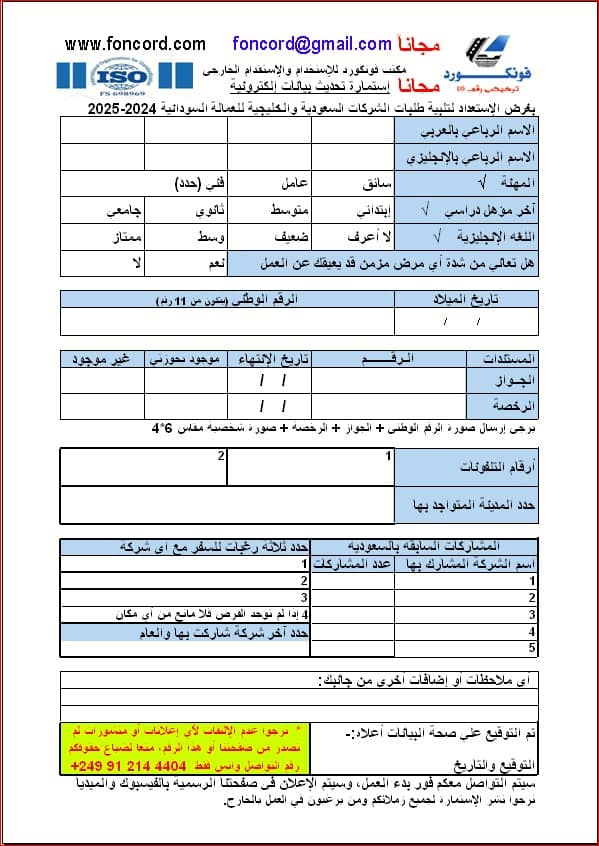 www.foncord.com foncord@gmail.com مجاناً
فونكورد
ترخيص رقم 10
مكتب فونكورد للإستخدام والإستقدام الخارجي
ISO
FS 698969
إستمارة تحديث بيانات إلكترونية مجاناً
بغرض الإستعداد لتلبية طلبات الشركات السعودية والخليجية للعمالة السودانية 2024-2025
الاسم الرباعي بالعربي
الاسم الرباعي بالإنجليزي
المهنة √ سائق عامل فني (حدد)
آخر مؤهل دراسي √ إبتدائي متوسط ثانوي جامعي
اللغه الإنجليزية √ لا أعرف ضعيف وسط ممتاز
هل تعاني من شدة أي مرض مزمن قد يعيقك عن العمل نعم لا
تاريخ الميلاد الرقم الوطني (يتكون من 11 رقم)
/ /
المستندات الرقـــــم تاريخ الإنتهاء موجود بحوزتي غير موجود
الجـواز / /
الرخصة / /
يرجى إرسال صورة الرقم الوطني + الجواز + الرخصة + صورة شخصية مقاس 6*4
أرقام التلفونات 1 2
حدد المدينة المتواجد بها
المشاركات السابقه بالسعوديه حدد ثلاثة رغبات للسفر مع اي شركة
اسم الشركة المشارك بها عدد المشاركات 1
1 2
2 3
3 4 إذا لم توجد الفرص فلا مانع من أي مكان
4 حدد آخر شركة شاركت بها والعام
5
أي ملاحظات أو إضافات أخرى من جانبك:
تم التوقيع علي صحة البيانات أعلاه:-
التوقيع والتاريخ
* نرجوا عدم الإلتفات لأي إعلانات أو منشورات لم
تصدر من صفحتنا أو هذا الرقم، منعا لضياع حقوقكم
رقم التواصل واتس فقط +249 91 214 4404
سيتم التواصل معكم فور بدء العمل، وسيتم الإعلان في صفحتنا الرسمية بالفيسبوك والميديا
نرجوا نشر الإستمارة لجميع زملائكم ومن يرغبون في العمل بالخارج.